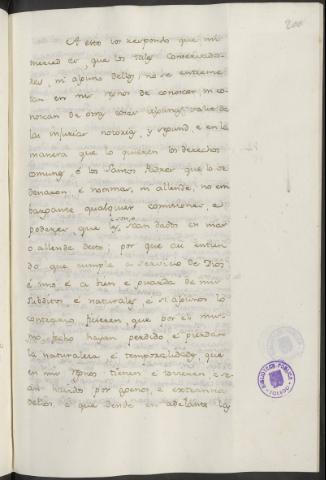 200
A esto los respondo que mi
merced es, que los tales conservado-
res, ni alguno dellos, no se entreme-
tan en mis Rgnos de conoscer ni co-
noscan de otras cosas algunas, salvo de
las injurias notorias, y segund, e en la
manera que lo quieren los derechos
comunes, e los Santos Padres que lo or-
denaron, e non mas, ni allende, no em-
bargante qualquier comisiones, e
poderes, que les sean dados en mas
o allende desto; por que asi entien-
do que cumple a servicio de Dios
e mio, e a bien e guarda de mis
subditos e naturales, e si algunos lo
contrario ficieren que por el mis-
mo fecho hayan perdido e pierdan
la naturaleza, e temporalidades, que
en mis Rgnos tienen e tovieren, e se-
an havidos por agenos, e extraños
dellos, e que dende en adelante los
BIBLIOTECA PUBLICA
TOLEDO